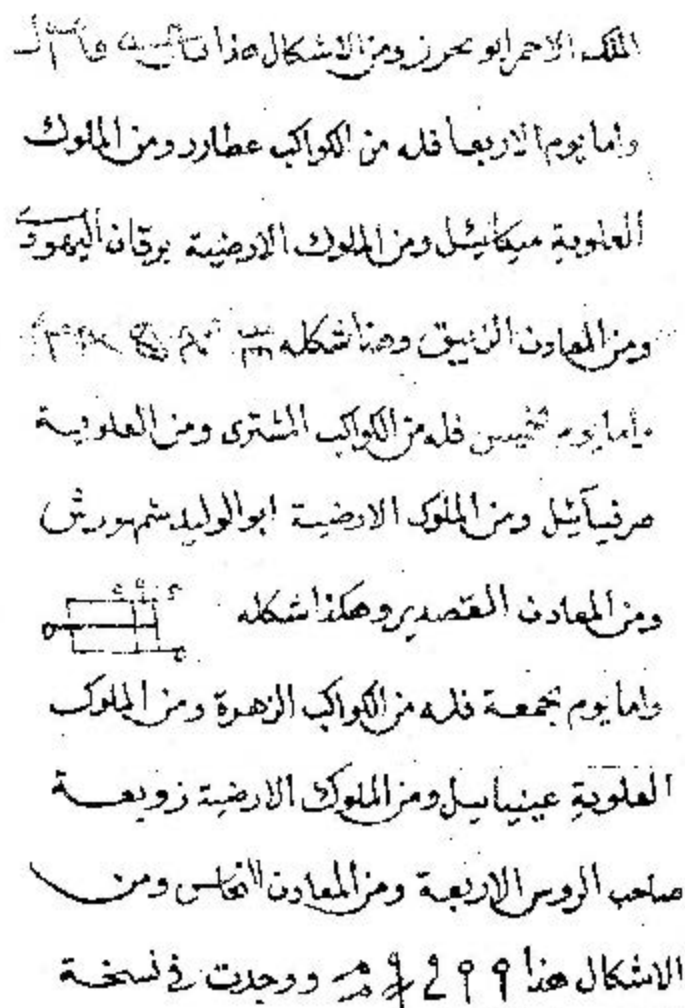 الملك الاحمر ابو محرز ومن الاشكال هذا
واما يوم الاربعا فله من الكواكب عطارد ومن الملوك
العلوية ميكائيل ومن الملوك الارضية برقان اليهودى
ومن المعادن الزيبق وهذا شكله
واما يوم الخميس فله من الكواكب المشترى ومن العلوية
صرفيائيل ومن الملوك الارضية ابو الوليد شمهورش
ومن المعادن القصدير وهكذا شكله
واما يوم الجمعة فله من الكواكب الزهرة ومن الملوك
العلوية عينياييل ومن الملوك الارضية زوبعة
صاحب الروس الاربعة ومن المعادن النحاس ومن
الاشكال هذا ووجدت فى نسخة